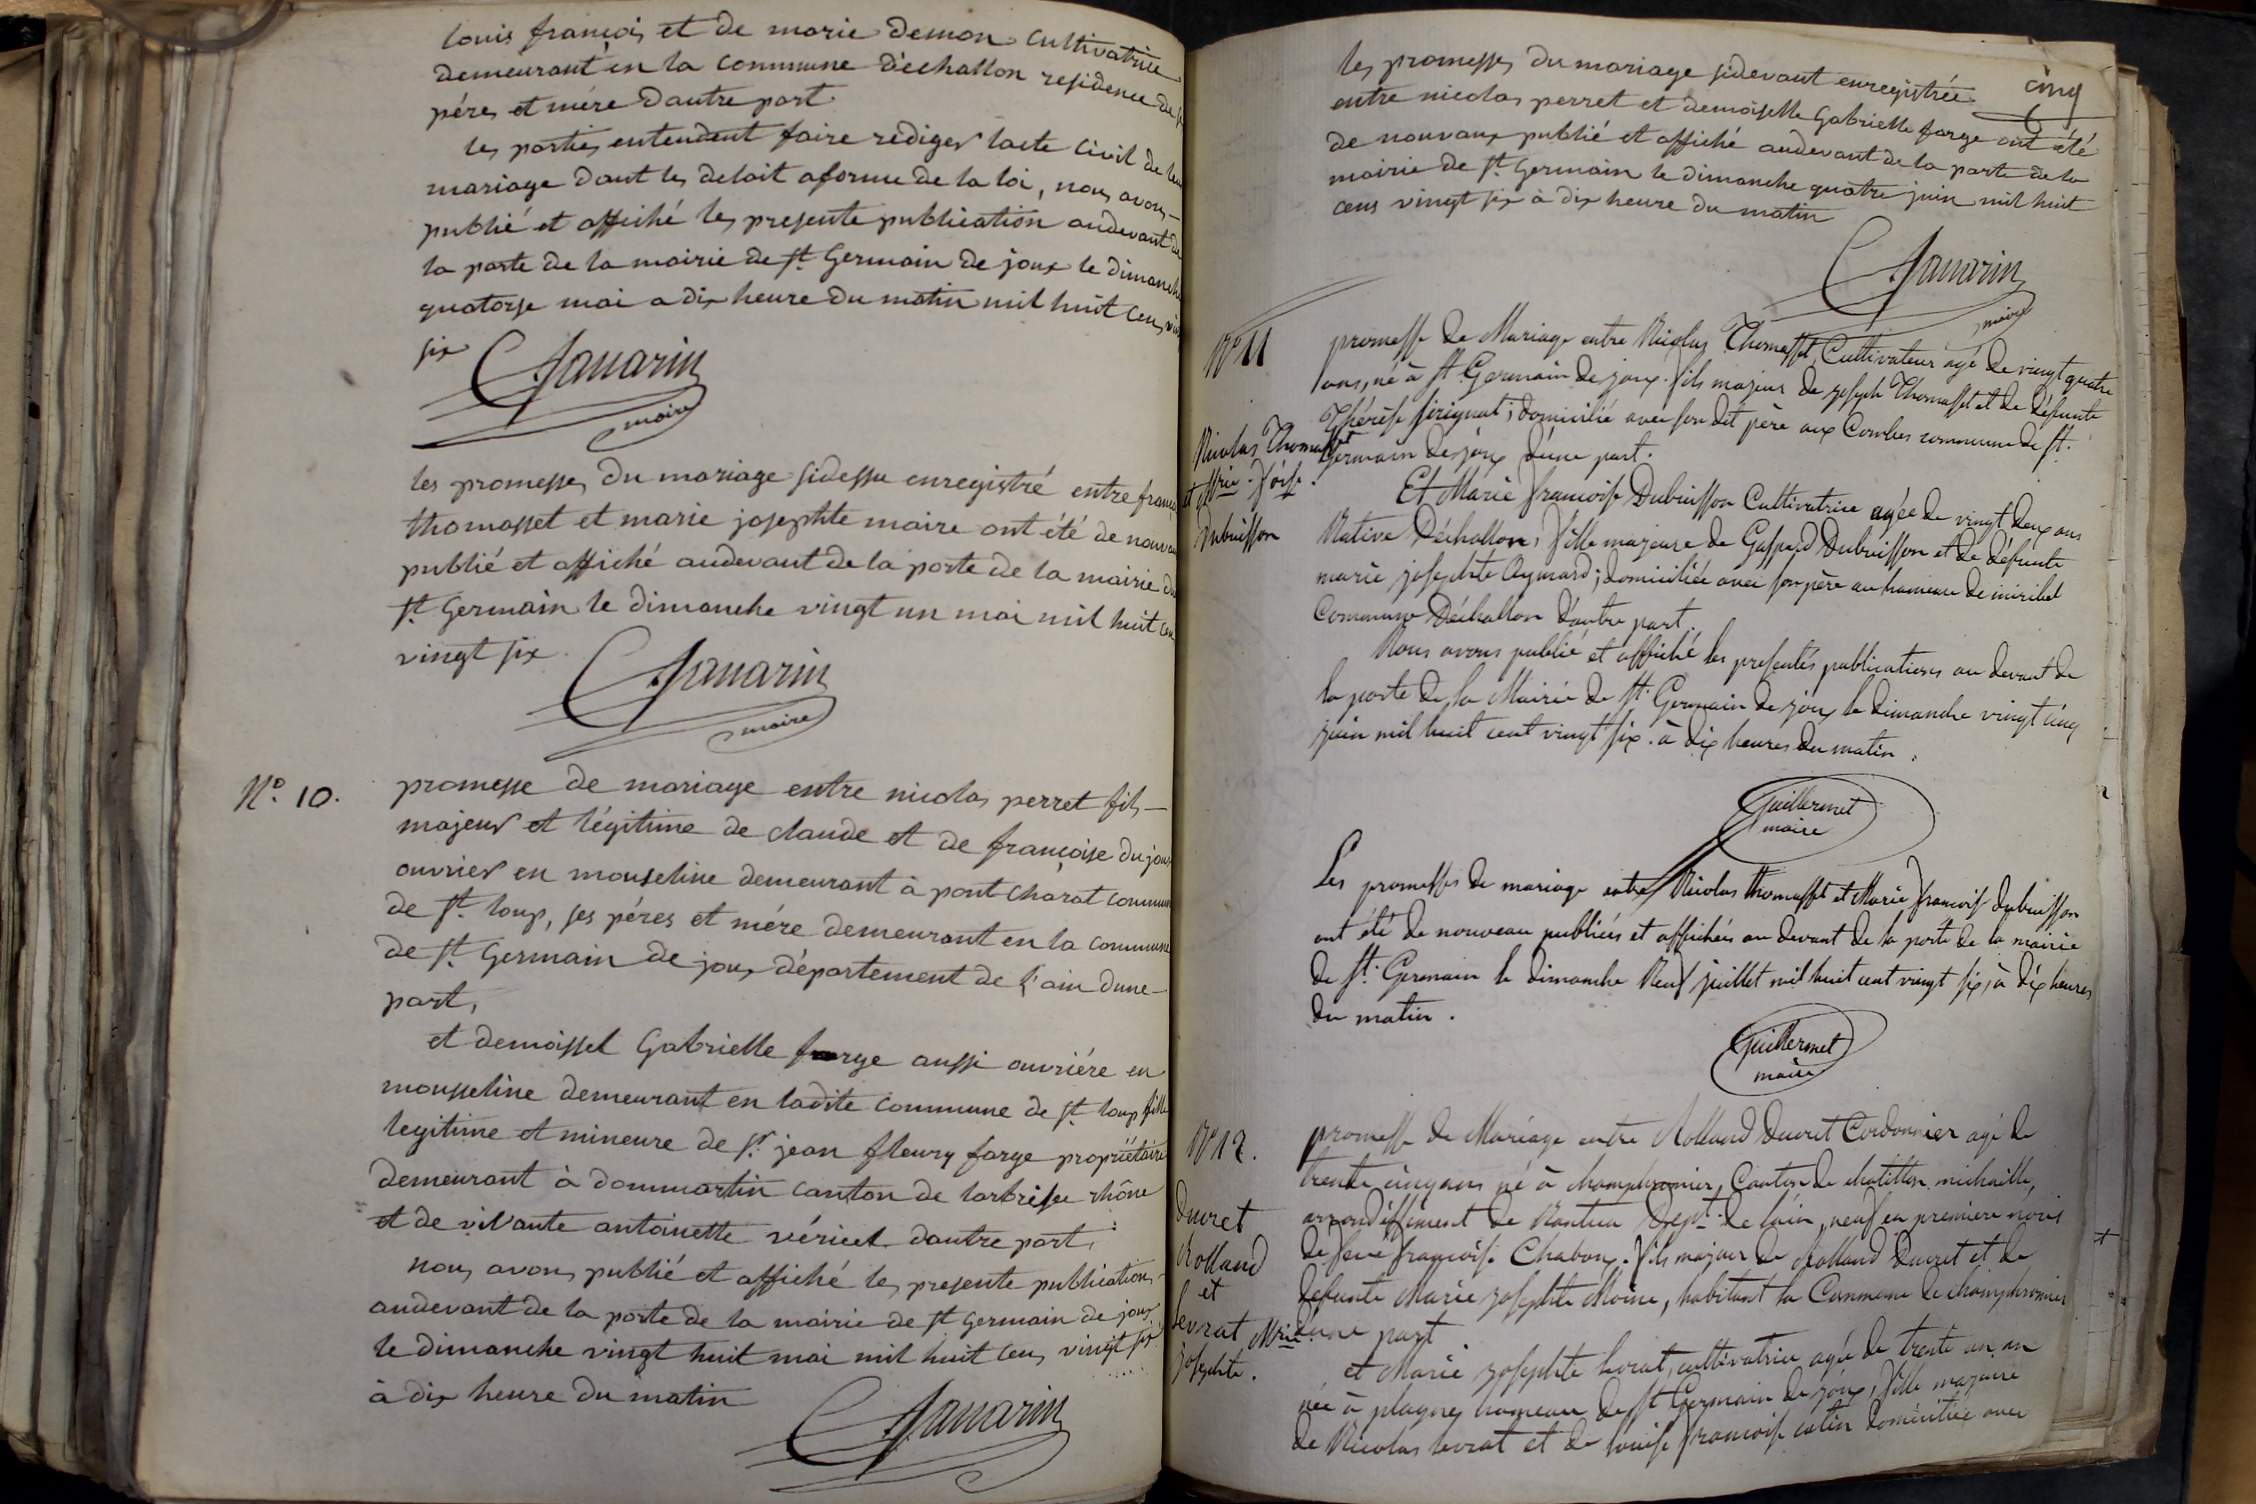 louis françois et de marie demon cultivatrice
demeurant en la commune d'échallon residence de
péres et mére dautre part
les parties entendent faire rédiger lacte civil de leur
mariage dont les delait aforme de la loi, nous avons
publié et affiché les presente publication audevant de
la porte de la mairie de St. Germain de joux le dimanche
quatorze mai a dix heure du matin mil huit cens vingt
six
maire
les promesses du mariage sidessu enregistré entre françois
thomasset et marie josephte maire ont été de nouveau
publié et affiché audevant de la porte de la mairie de
St. Germain le dimanche vingt un mai mil huit cens
vingt six
maire
N.o 10.
promesse de mariage entre nicolas perret fils
majeur et légitime de claude et de françoise dujoux
ouvrier en mouseline demeurant à pont charat commune
de St. loup, ses péres et mére demeurant en la commune
de St. Germain de joux département de l'ain dune
part,
et demoissel Gabrielle farge aussi ouvriére en
mousseline demeurant en ladite commune de St. loup fille
legitime et mineure de Sr. jean fleury farge propriétaire
demeurant à dommartin canton de larbresle rhône
et de vivante antoinette véricel dautre part,
nous avons publié et affiché les presente publications
audevant de la porte de la mairie de St Germain de joux
le dimanche vingt huit mai mil huit cens vingt six
à dix heure du matin
cinq
les promesses du mariage sidevant enregistrée
entre nicolas perret et demoiselle Gabrielle farge ont été
de nouvaux publié et affiché audevant de la porte de la
mairie de St. Germain le dimanche quatre juin mil huit
cens vingt six à dix heure du matin
maire
No 11
Nicolas Thomasset
et Mrie. fçoise.
Dubuisson
promesse de Mariage entre Nicolas Thomasset, Cultivateur agé de vingt quatre
ans, né à St. Germain de joux. fils majeur de joseph Thomasset et de défunte
Thérèse sirignat; domicilié avec son dit père aux Combes commune de St.
Germain de joux d'une part.
Et Marie francoise Dubuisson Cultivatrice agée de vingt deux ans
Native D'échallon, fille majeure de Gaspard Dubuisson et de défunte
marie josephte Aymard; domiciliée avec son père au hameau de miribel
Commune D'échallon d'autre part.
Nous avons publié et affiché les presentés publications au devant de
la porte de la Mairie de St. Germain de joux le dimanche vingt cinq
juin mil huit cent vingt six. à dix heures du matin.
Guillermet
maire
Les promesses de mariage entre Nicolas thomasset et Marie francoise dubuisson
ont été de nouveau publiées et affichées au devant de la porte de la mairie
de St. Germain le dimanche Neuf juillet mil huit cent vingt six, à dix heures
du matin.
Guillermet
maire
No 12.
Ducret
Rolland
et
Levrat Mrie.
josephte.
promesse de Mariage entre Rolland Ducret Cordonnier agé de
trente cinq ans né à champfromier, Canton de chatillon michaille,
arrondissement de Nantua Dept. de l'ain, veuf en premiere noces
de feue françoise Chabou, fils majeur de Rolland Ducret et de
defunte Marie josephte Moine, habitant la Commune de champfromier
d'une part
et Marie josephte levrat, cultivatrice agée de trente un an
née à plagnes hameau de St Germain de joux, fille majeure
de Nicolas levrat et de louise francoise catin domiciliée avec